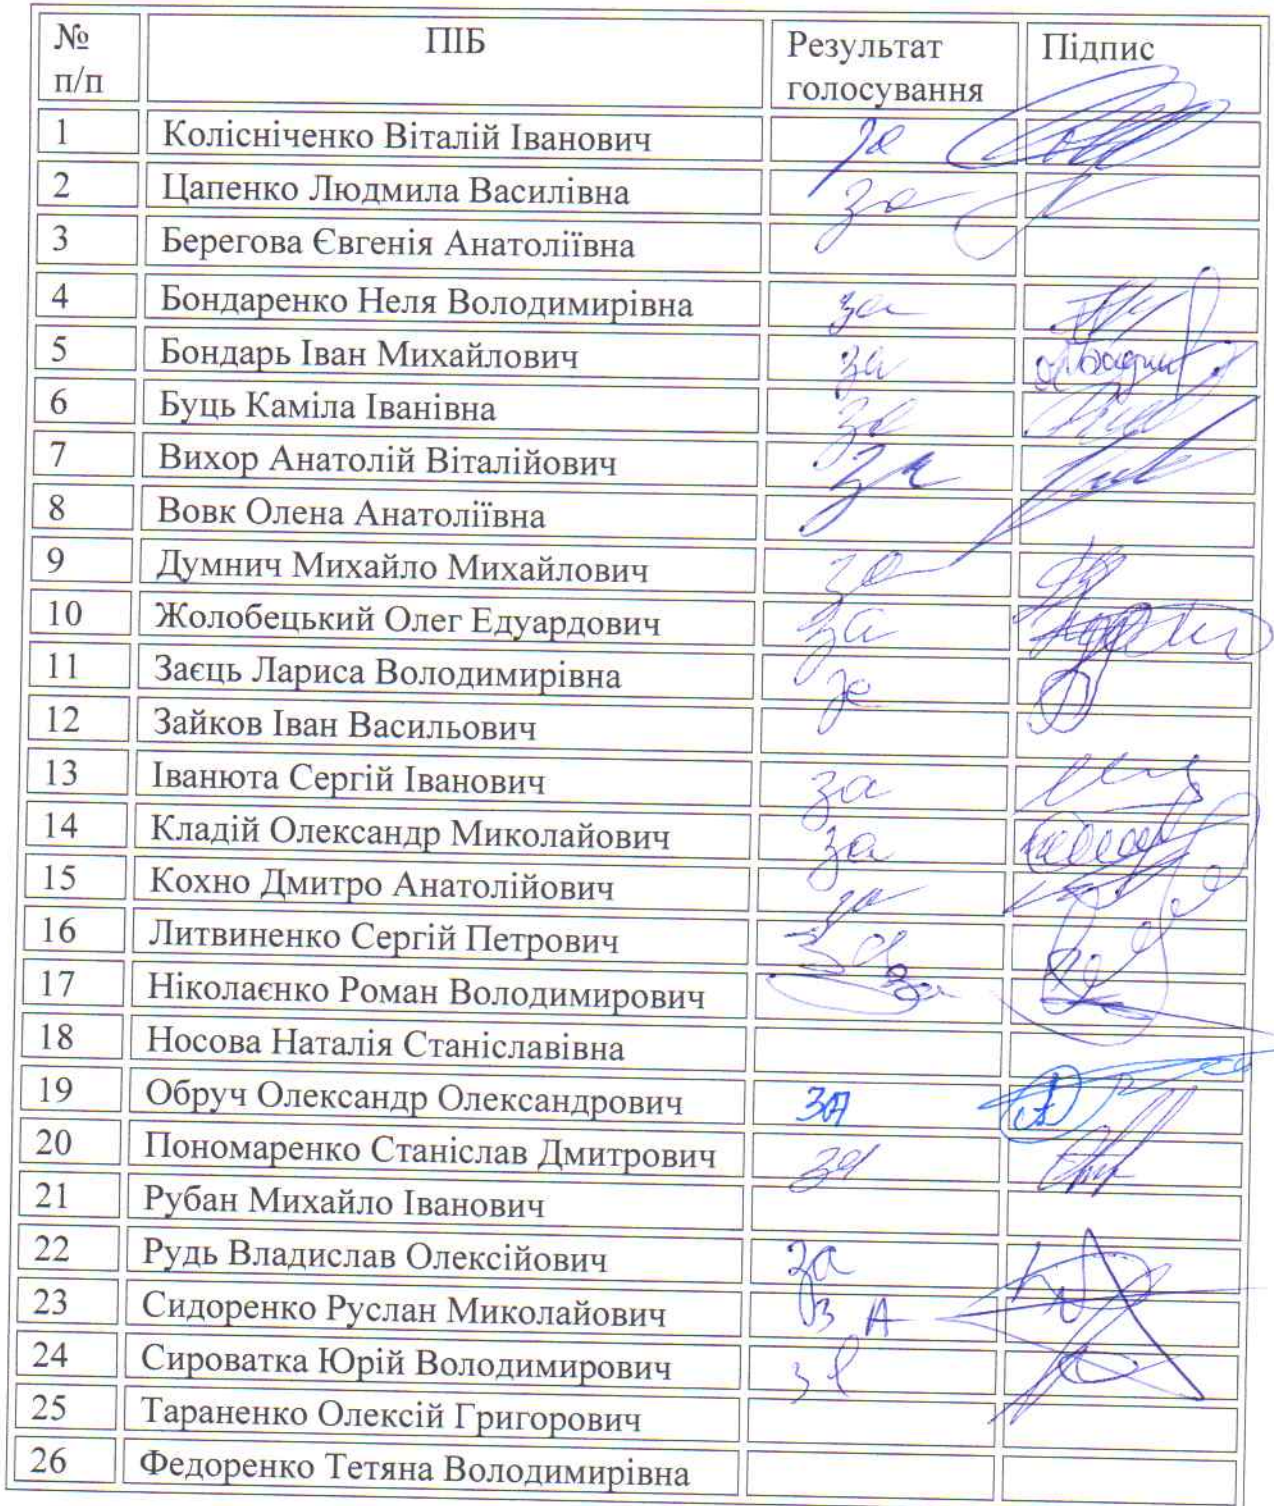 № п/п ПІБ Результат голосування Підпис
1 Колісніченко Віталій Іванович за
2 Цапенко Людмила Василівна за
3 Берегова Євгенія Анатоліївна
4 Бондаренко Неля Володимирівна за
5 Бондарь Іван Михайлович за
6 Буць Каміла Іванівна за
7 Вихор Анатолій Віталійович за
8 Вовк Олена Анатоліївна
9 Думнич Михайло Михайлович за
10 Жолобецький Олег Едуардович за
11 Заєць Лариса Володимирівна за
12 Зайков Іван Васильович
13 Іванюта Сергій Іванович за
14 Кладій Олександр Миколайович за
15 Кохно Дмитро Анатолійович за
16 Литвиненко Сергій Петрович за
17 Ніколаєнко Роман Володимирович за
18 Носова Наталія Станіславівна
19 Обруч Олександр Олександрович за
20 Пономаренко Станіслав Дмитрович за
21 Рубан Михайло Іванович
22 Рудь Владислав Олексійович за
23 Сидоренко Руслан Миколайович з А
24 Сироватка Юрій Володимирович за
25 Тараненко Олексій Григорович
26 Федоренко Тетяна Володимирівна